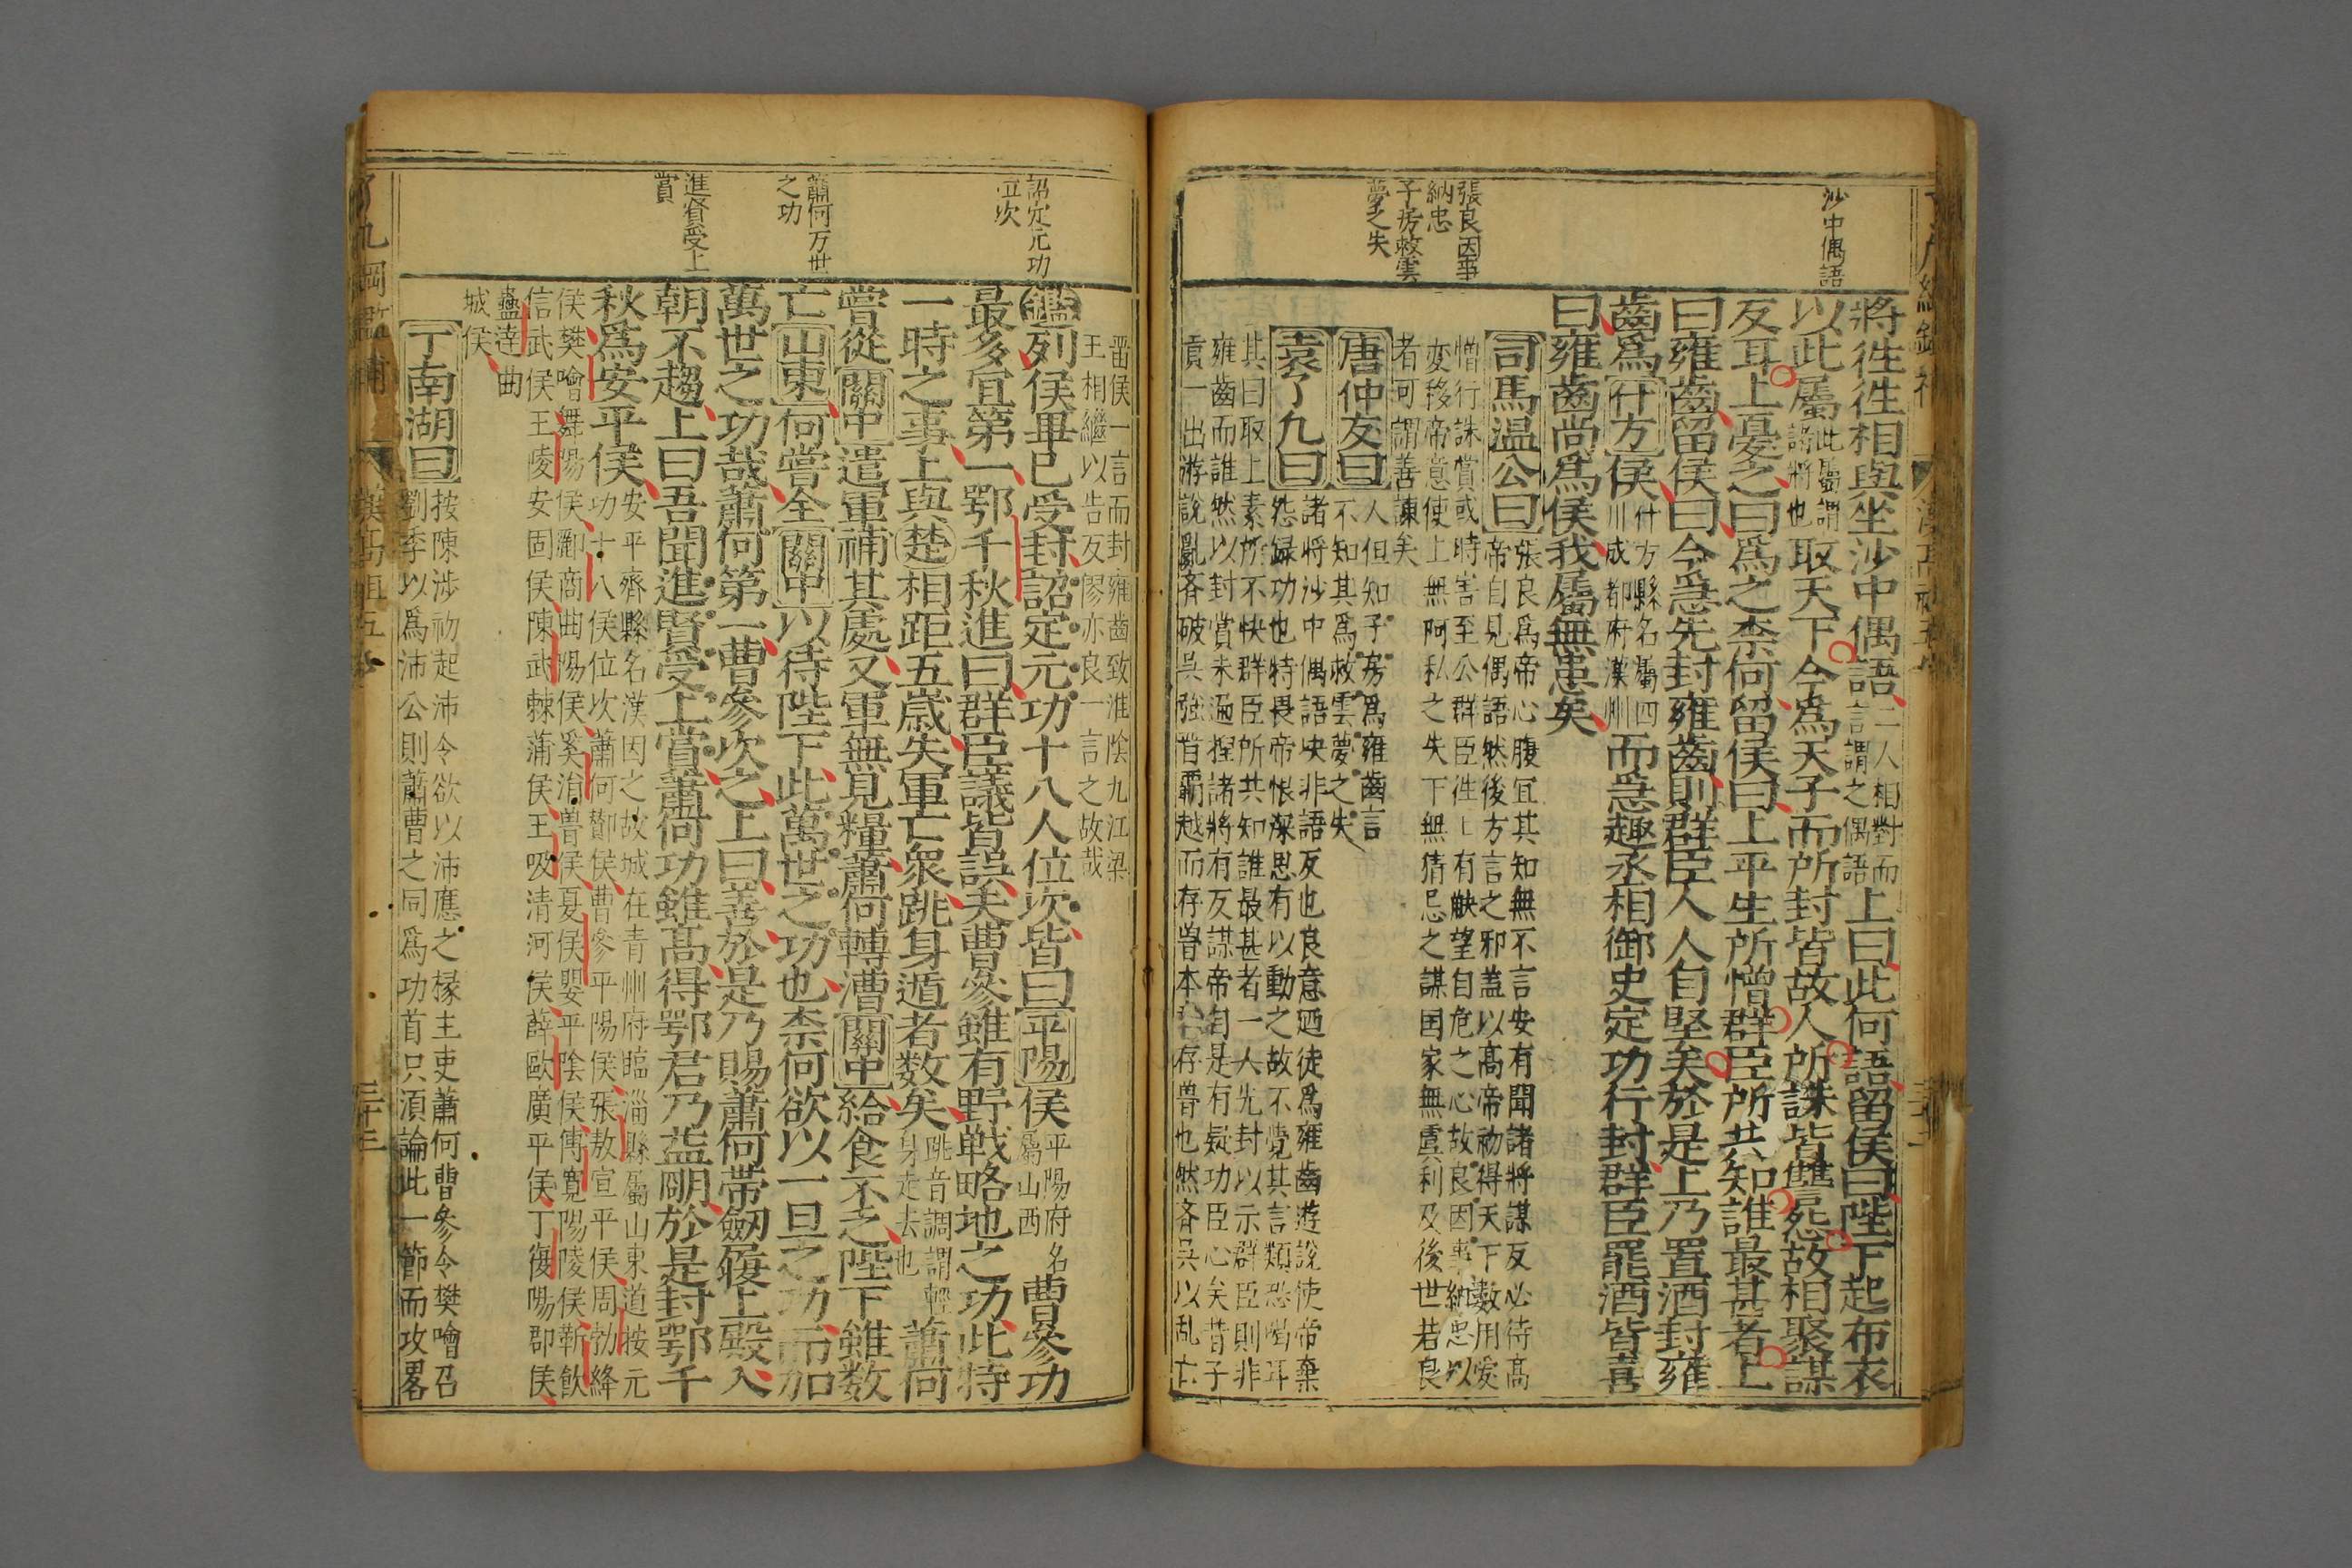 沙中偶語
張良因事
納忠
子房救雲
夢之失
將徃徃相與坐沙中偶語二人相對而言謂之偶語上曰此何語留侯曰陛下起布衣
以此屬此屬謂諸將也取天下今爲天子而所封皆故人所誅皆讐怨故相聚謀
反耳上憂之曰爲之柰何留侯曰上平生所憎群臣所共知誰最甚者上
曰雍齒留侯曰今急先封雍齒則群臣人人自堅矣於是上乃置酒封雍
齒爲什方侯什方縣名屬四川成都府漢州而急趣丞相御史定功行封群臣罷酒皆喜
曰雍齒尚爲侯我屬無患矣
司馬温公曰張良爲帝心腹宜其知無不言安有聞諸將謀反必待高
帝自見偶語然後方言之邪蓋以高帝初得天下數用愛
憎行誅賞或時害至公群臣徃徃有觖望自危之心故良因事納忠以
变移帝意使上無阿私之失下無猜忌之謀国家無虞利及後世若良
者可謂善諫矣
唐仲友曰人但知子房爲雍齒言
不知其爲救雲夢之失
袁了凡曰諸將沙中偶語决非語反也良意廼徒爲雍齒遊說使帝棄
怨録功也特畏帝恨深思有以動之故不覺其言類恐喝耳
其曰取上素所不快群臣所共知誰最甚者一人先封以示群臣則非
雍齒而誰然以封賞未遍揑諸將有反謀帝自是有疑功臣心矣昔子
貢一出游說亂齐破吳强晋霸越而存魯本爲存魯也然齐吳以乱亡
詔定元功
位次
蕭何万世
之功
進賢受上
賞
畱侯一言而封雍齒致淮陰九江梁
王相繼以告反僇亦良一言之故哉
鑑列侯畢已受封詔定元功十八人位次皆曰平陽侯平陽府名屬山西曹參功
最多宜第一鄂千秋進曰群臣議皆誤夫曹參雖有野戰略地之功此特
一時之事上與楚相距五歲失軍亡衆跳身遁者数矣跳音調謂輕身走去也蕭何
嘗從關中遣軍補其處又軍無見糧蕭何轉漕關中給食不乏陛下雖数
亡山東何嘗全關中以待陛下此萬世之功也柰何欲以一旦之功而加
萬世之功哉蕭何第一曹參次之上曰善於是乃賜蕭何帶劒履上殿入
朝不趨上曰吾聞進賢受上賞蕭何功雖高得鄂君乃益明於是封鄂千
秋爲安平侯安平齊縣名漢因之故城在青州府臨淄縣屬山東道按元
功十八侯位次蕭何酇侯曹參平陽侯張敖宣平侯周勃絳
侯樊噲舞陽侯酈商曲陽侯奚涓魯侯夏侯嬰平陰侯傅寛陽陵侯靳歙
信武侯王陵安固侯陳武棘蒲侯王吸清河侯薛歐廣平侯丁復陽郡侯
蟲逹曲
城侯
丁南湖曰按陳涉初起沛令欲以沛應之掾主吏蕭何曹參令樊噲召
劉季以爲沛公則蕭曹之同爲功首只須論此一節而攻畧